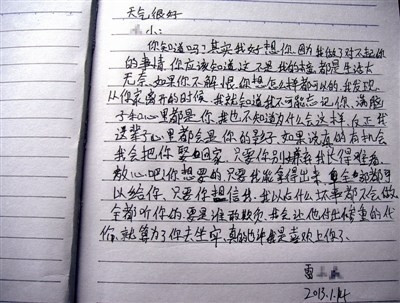 天气很好
小:
你知道吗?其实我好想你,因为我做了对不起你
的事情,你应该知道这不是我的错都是生活太
无奈.如果你不解恨,你想怎么样都可以的我发现
从你家离开的时候.我就知道我不可能忘记你.满脑
子和心里都是你.我也不知道为什么会这样,反正我
这辈子心里都会是你的影子,如果说真的有机会
我会把你娶回家.只要你别嫌弃我长得难看.
放心吧你想要的只要我能拿得出来.都可
以给你.只要你想信我.我以后什么坏事都不会做.
全都听你的要是谁敢欺负.我会让他付出惨重的代
价.就算为了你去坐牢.真的也许我是喜欢上你了.
雷
2013.1.14